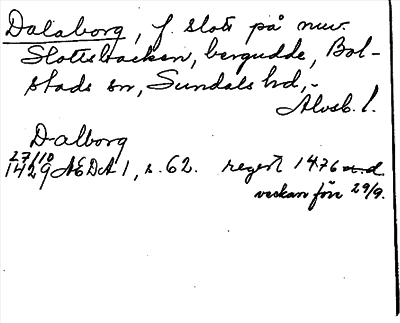 Dalaborg, f. slott på nuv.
Slottsbacken, bergudde, Bol-
stads sn, Sundals hd,
Älvsb. l.
Dalborg
27/10
1429 ÆDA 1, s. 62. regest 1476 u.d.
veckan före 29/9.